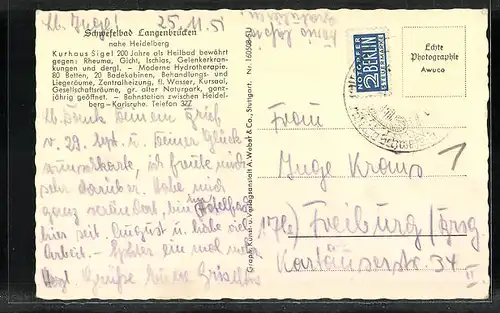 Lb. Inge! 25.11.51
Schwefelbad Langenbrücken
nahe Heidelberg
Kurhaus Sigel 200 Jahre als Heilbad bewährt
gegen: Rheuma, Gicht, Ischias, Gelenkerkran-
kungen und dergl. - Moderne Hydrotherapie.
80 Betten, 20 Badekabinen, Behandlungs- und
Liegeräume, Zentralheizung, fl. Wasser, Kursaal,
Gesellschaftsräume, gr. alter Naturpark, ganz-
jährig geöffnet. - Bahnstation zwischen Heidel-
berg-Karlsruhe. Telefon 322
lb. Dank Deinen Brief
v. 29. Sept. u. Deiner Glück
wunschkarte, ich freute mich
sehr darüber. Habe mich
ganz verändert, bin
hier seit August u. habe viel
Arbeit. - Später ein mal mehr
Herzl. Grüße
Graph. Kunst- u. Verlagsanstalt A. Weber & Co., Stuttgart. Nr. 16050851
NOTOPFER
2 BERLIN
STEUERMARKE
Echte
Photographie
Awuco
Frau
Inge Kraus
17b) Freiburg/Brsg
Kartäuserstr. 34 II
1